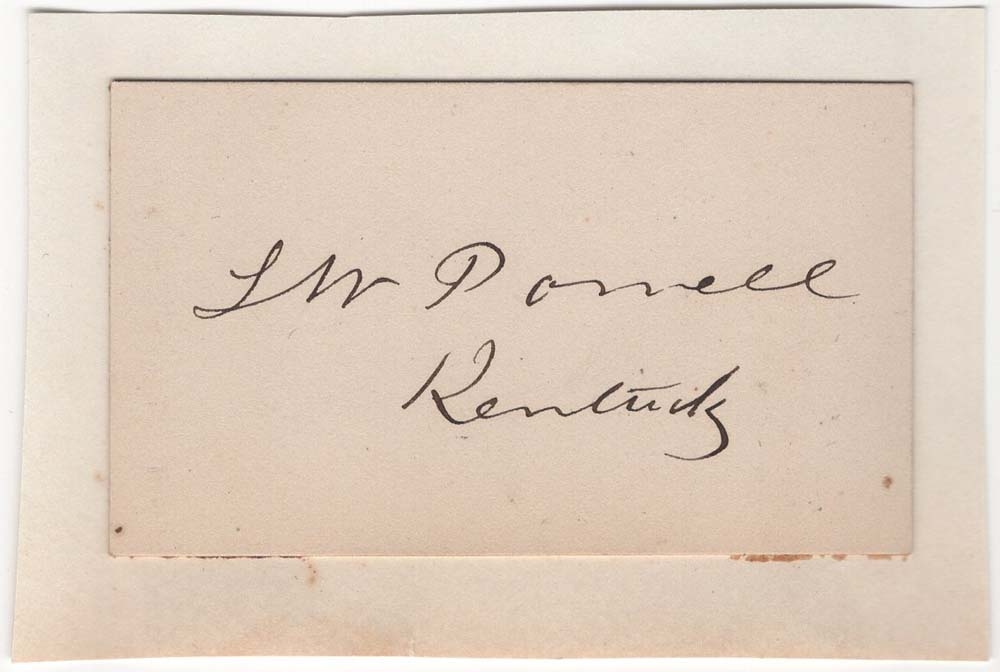 L W Powell
Kentucky